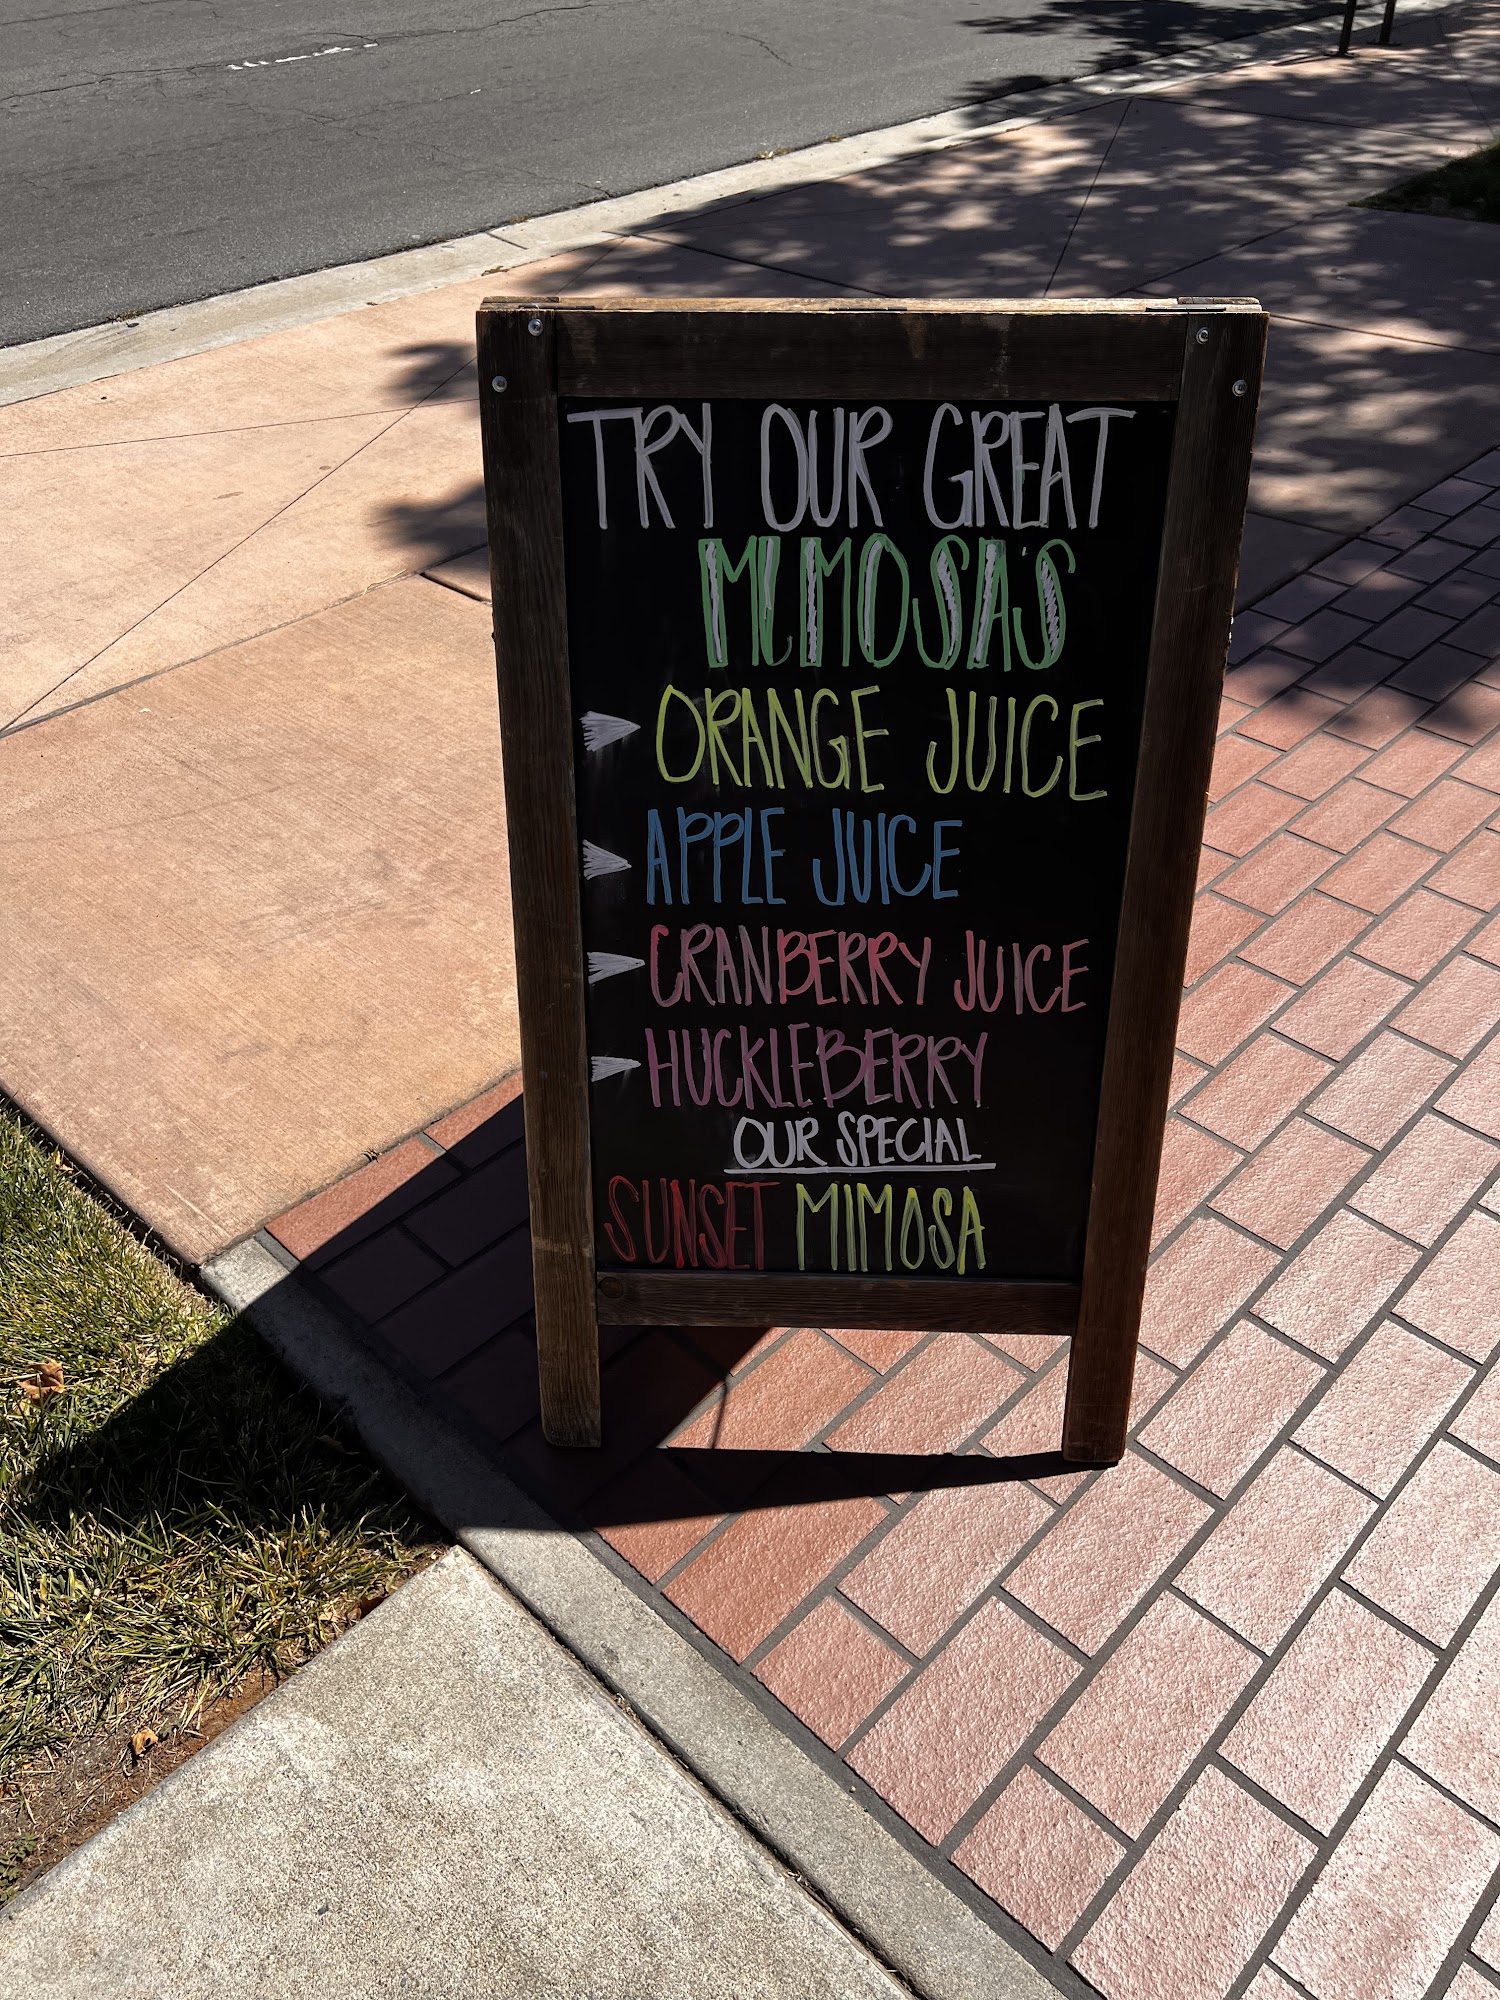 TRY OUR GREAT
MIMOSAS
ORANGE JUICE
APPLE JUICE
CRANBERRY JUICE
HUCKLEBERRY
OUR SPECIAL
SUNSET MIMOSA